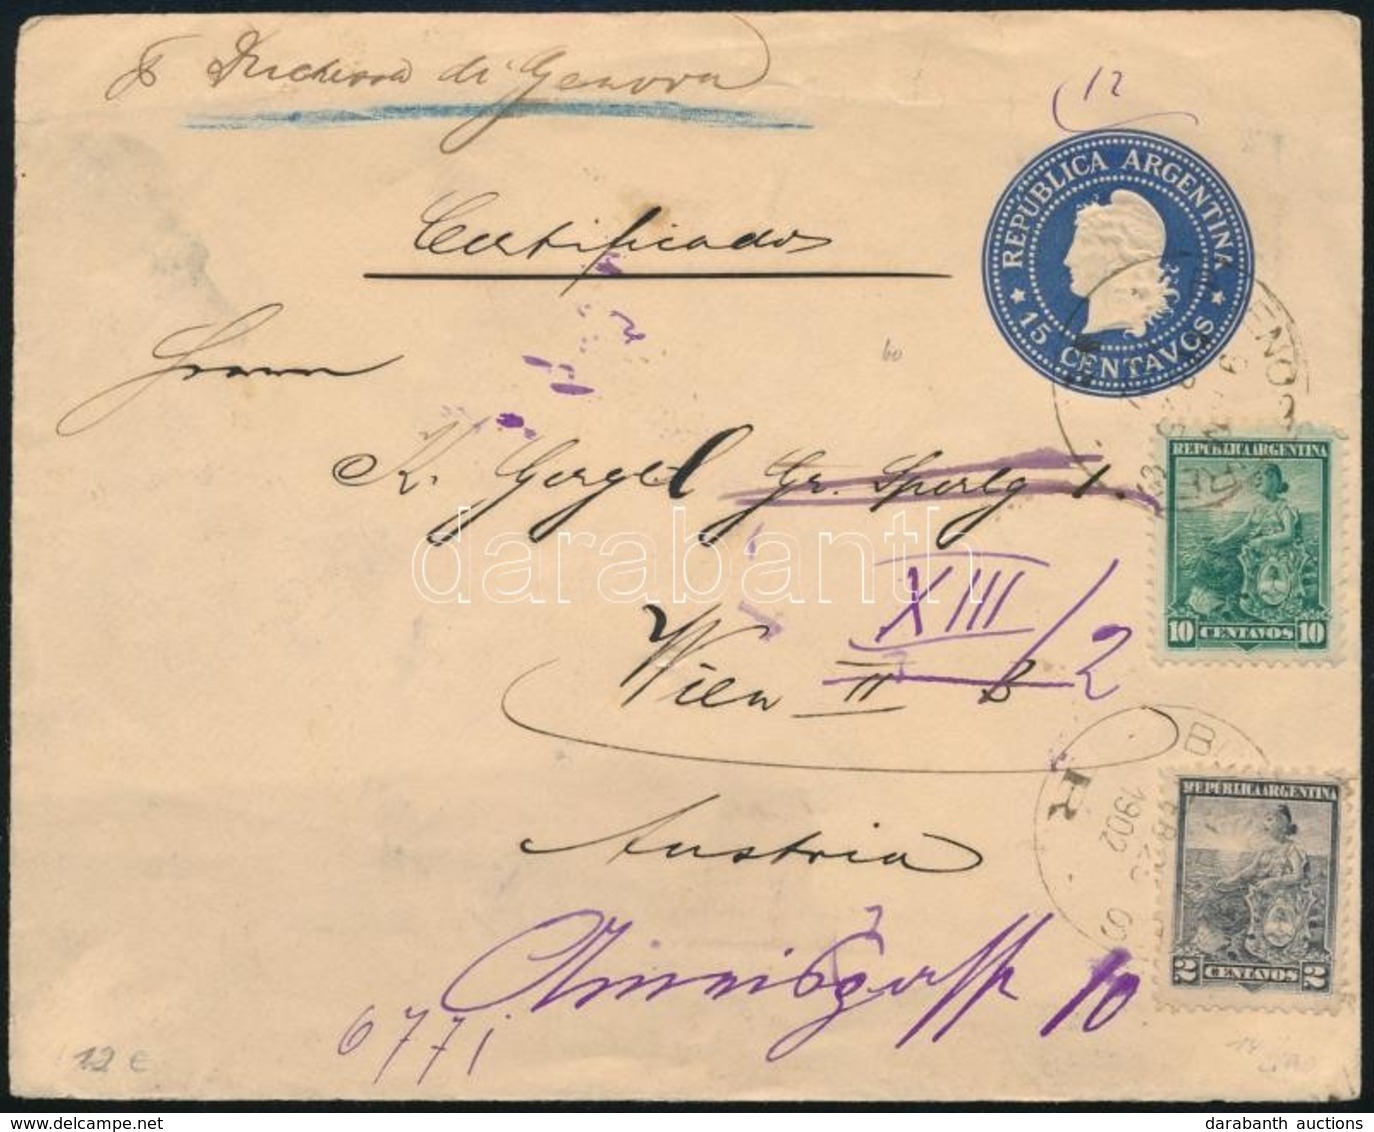 Duchessa di Genova
12
REPÚBLICA ARGENTINA
15 CENTAVOS
Certificados
Herrn
60
K. Gergel Gr. Sperlg 1.
REPUBLICA ARGENTINA
10 CENTAVOS 10
darabanth
XIII/2
Wien II
B
REPUBLICA ARGENTINA
1902
2 CENTAVOS 2
Austria
10
6771
12 €
darabanth auctions
www.delcampe.net